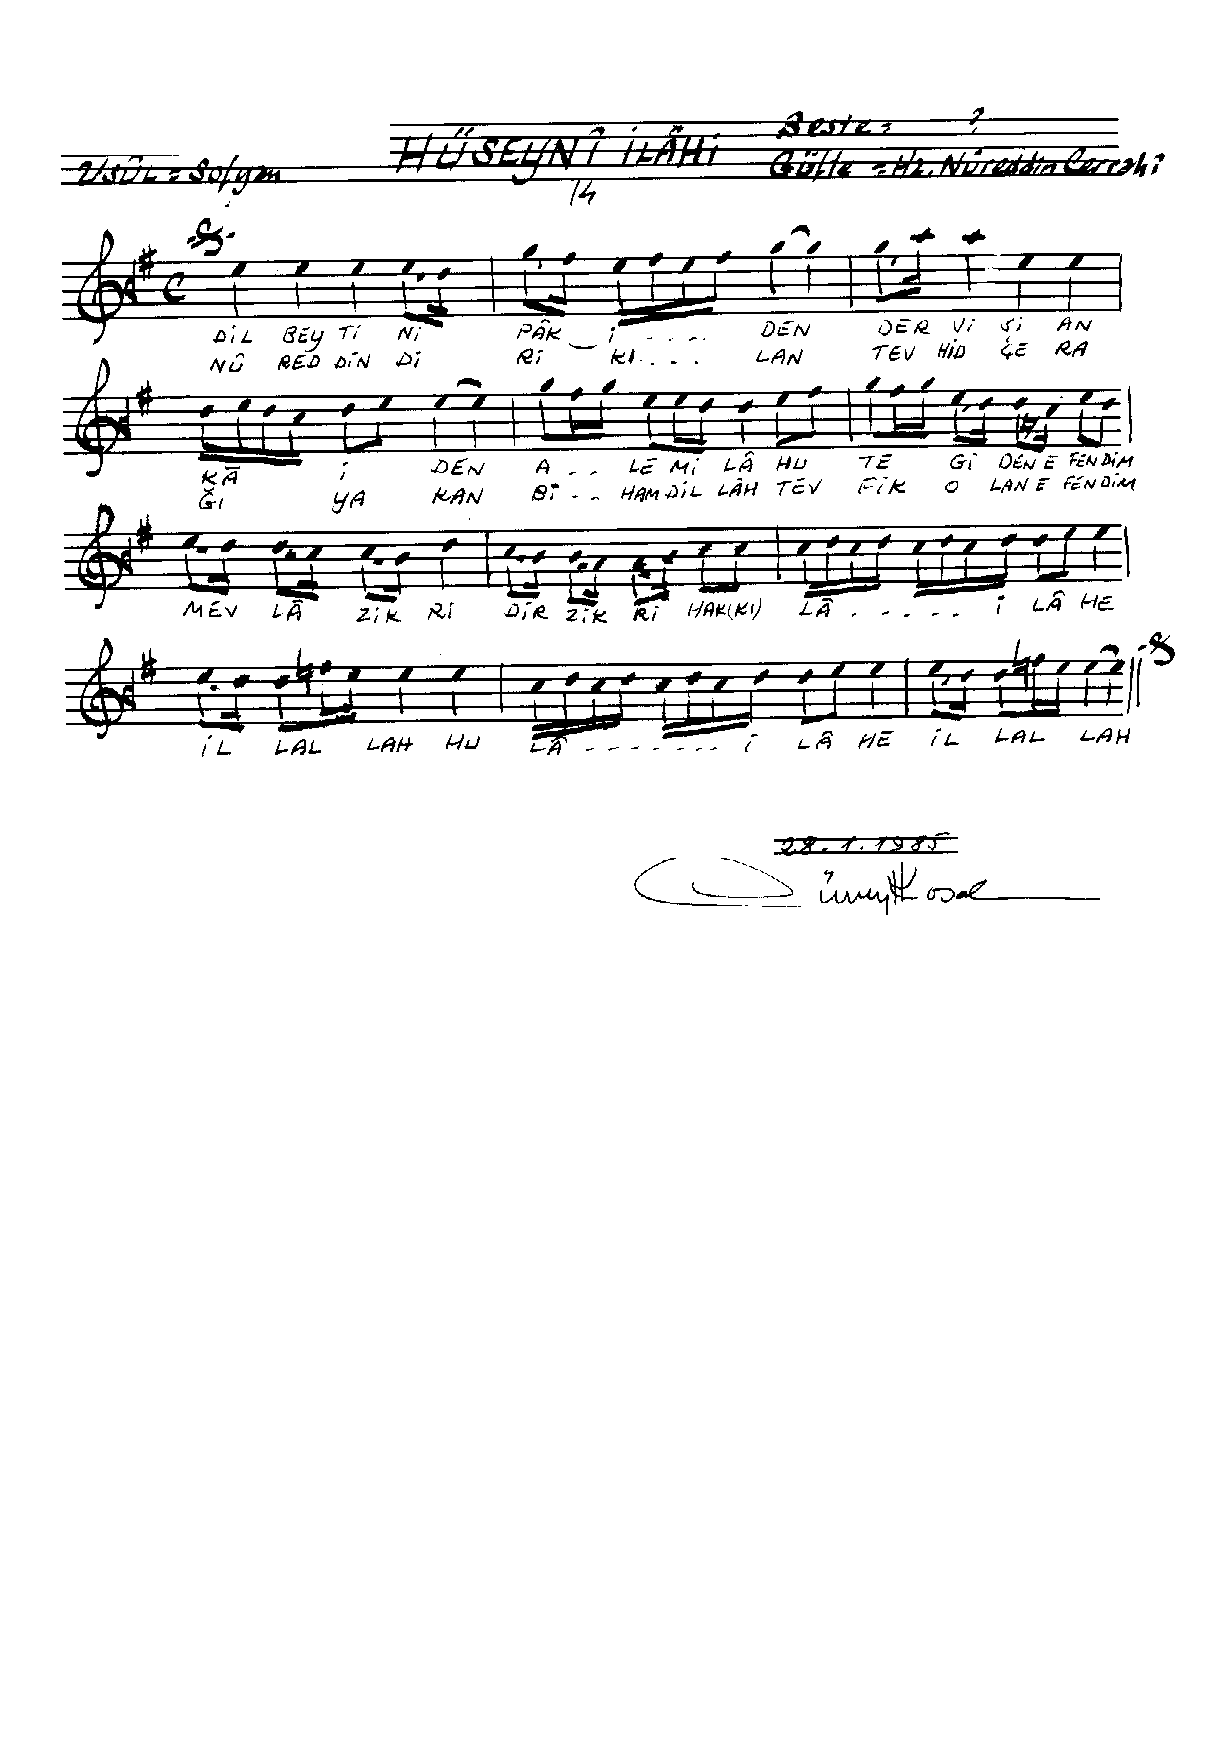 Beste = ?
HÜSEYNÎ İLÂHİ
USÛL = Sofyan
Güfte = Hz. Nûreddin Cerrahî
14
DİL BEY Tİ Nİ PÂK İ . . . . DEN DER Vİ Şİ AN
NÛ RED DİN Dİ Rİ KI . . . . LAN TEV HİD ÇE RA
KÂ İ DEN A . . LE Mİ LÂ HU TE Gİ DEN E FENDİM
ĞI YA KAN Bİ . . HAM DİL LÂH TEV FİK O LAN E FENDİM
MEV LÂ ZİK Rİ DİR ZİK Rİ HAK(KI) LÂ . - - - . İ LÂ HE
İL LAL LAH HU LÂ - - - - - - - İ LÂ HE İL LAL LAH
28.1.1985
Cüneyt Kosal